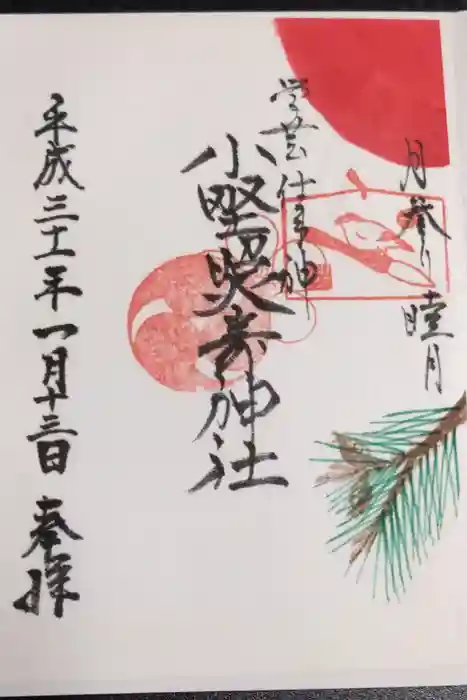 月参り 睦月
学芸仕事神
小野照崎神社
平成三十一年一月十三日 奉拝